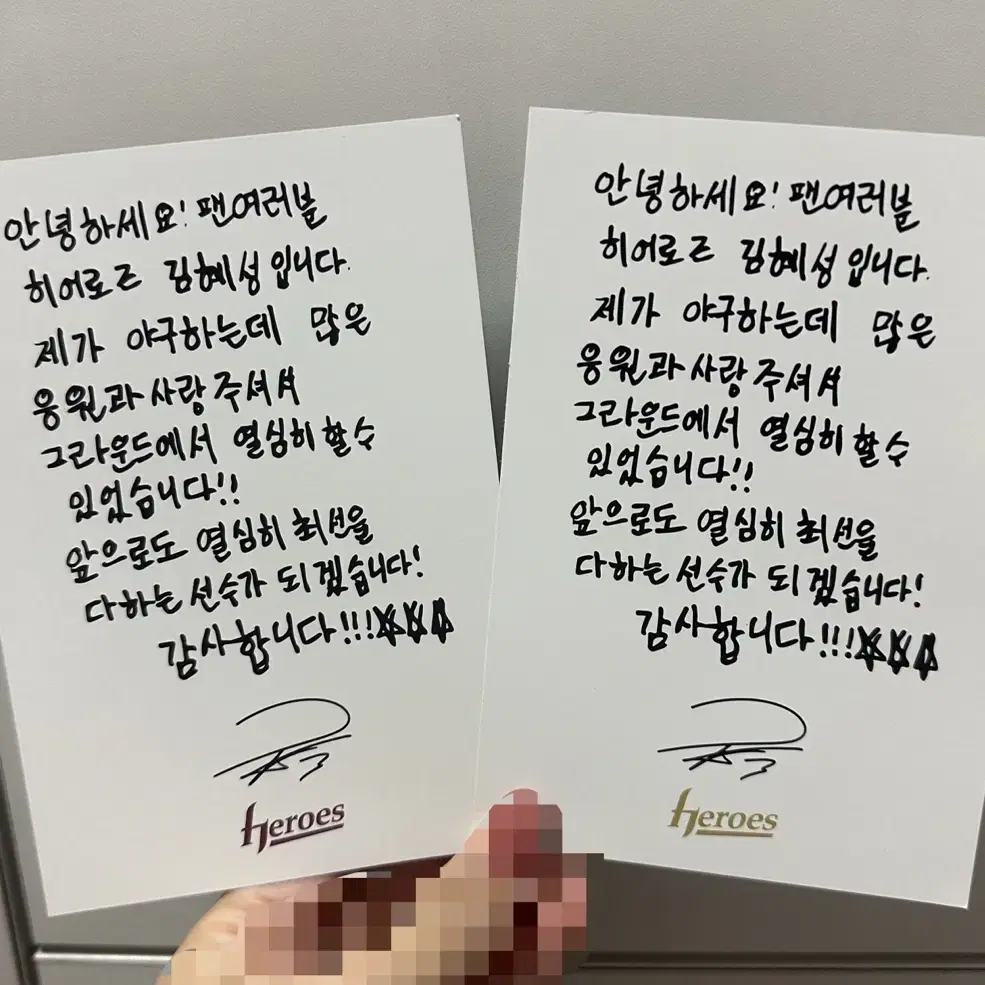 안녕하세요! 팬여러분
히어로즈 김혜성입니다.
제가 야구하는데 많은
응원과 사랑 주셔서
그라운드에서 열심히 할 수
있었습니다!!
앞으로도 열심히 최선을
다하는 선수가 되겠습니다!
감사합니다!!!☆☆☆
Heroes
안녕하세요! 팬여러분
히어로즈 김혜성입니다.
제가 야구하는데 많은
응원과 사랑 주셔서
그라운드에서 열심히 할 수
있었습니다!!
앞으로도 열심히 최선을
다하는 선수가 되겠습니다!
감사합니다!!!☆☆☆
Heroes